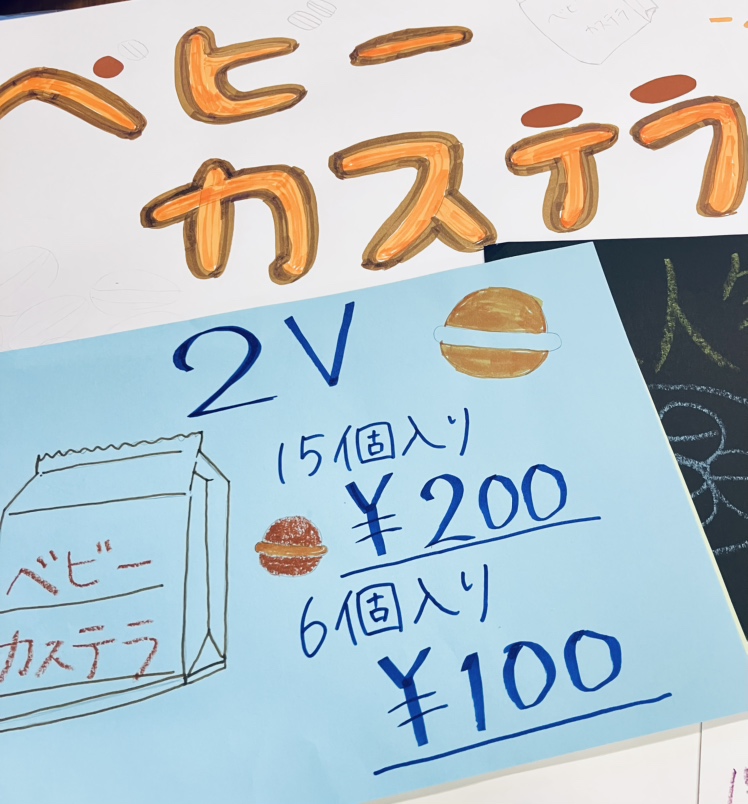 ベビー
カステラ
カステラ
2V
15個入り
¥200
6個入り
¥100
ベビー
カステラ
人